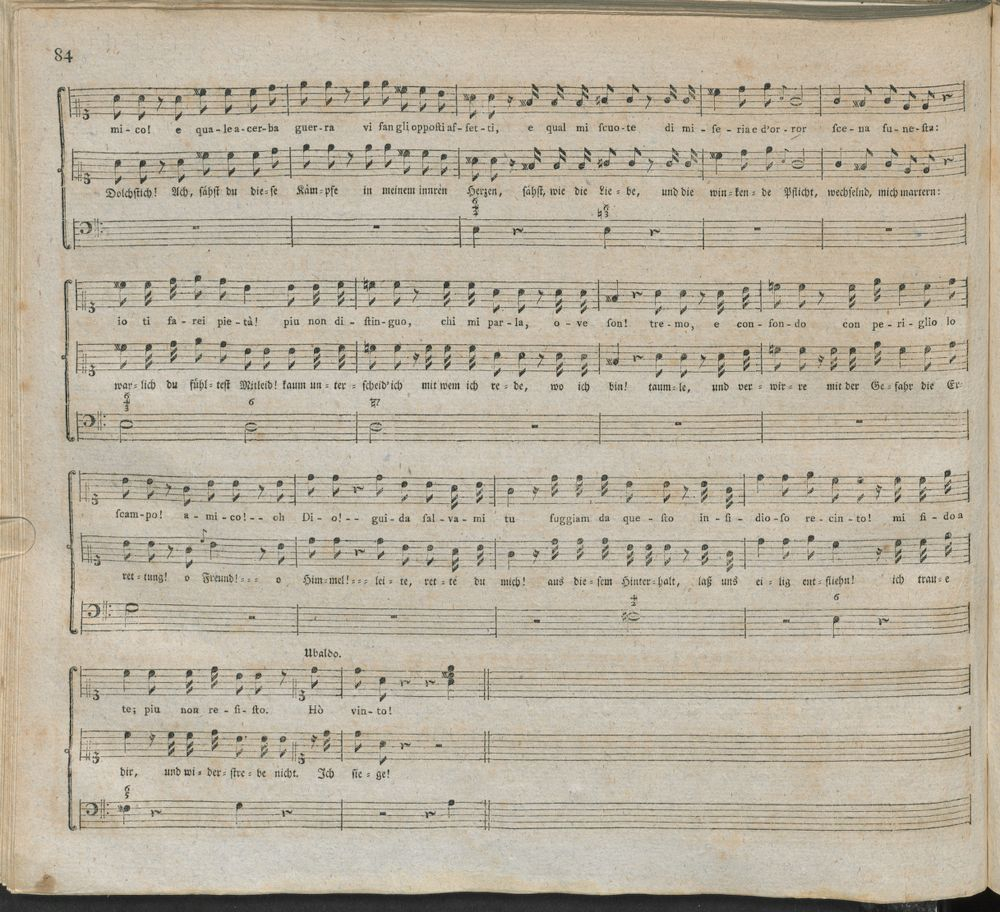 84
mi-co! e qua-le a-cer-ba guer-ra vi fan gli oppoſti af-fet-ti, e qual mi ſcuo-te di mi-ſe-ria e d'or-ror ſce-na fu-ne-ſta:
Dolchſtich! Ach, ſähſt du die-ſe Käm-pfe in meinem innren Herzen, ſähſt, wie die Lie-be, und die win-ken-de Pflicht, wechſelnd, mich martern:
io ti fa-rei pie-tà! piu non di-ſtin-guo, chi mi par-la, o-ve ſon! tre-mo, e con-fon-do con pe-ri-glio lo
war-lich du fühl-teſt Mitleid! kaum un-ter-ſcheid' ich mit wem ich re-de, wo ich bin! taum-le, und ver-wir-re mit der Ge-fahr die Er-
6
ſcam-po! a-mi-co!-- oh Di-o!-- gui-da ſal-va-mi tu fuggiam da que-ſto in-ſi-dio-ſo re-cin-to! mi fi-do a
ret-tung! o Freund!--- o Him-mel!--- lei-te, ret-te du mich! aus die-ſem Hinter-halt, laß uns ei-lig ent-fliehn! ich trau-e
6
Ubaldo.
te; piu non re-ſi-ſto. Hò vin-to!
dir, und wi-der-ſtre-be nicht. Ich ſie-ge!